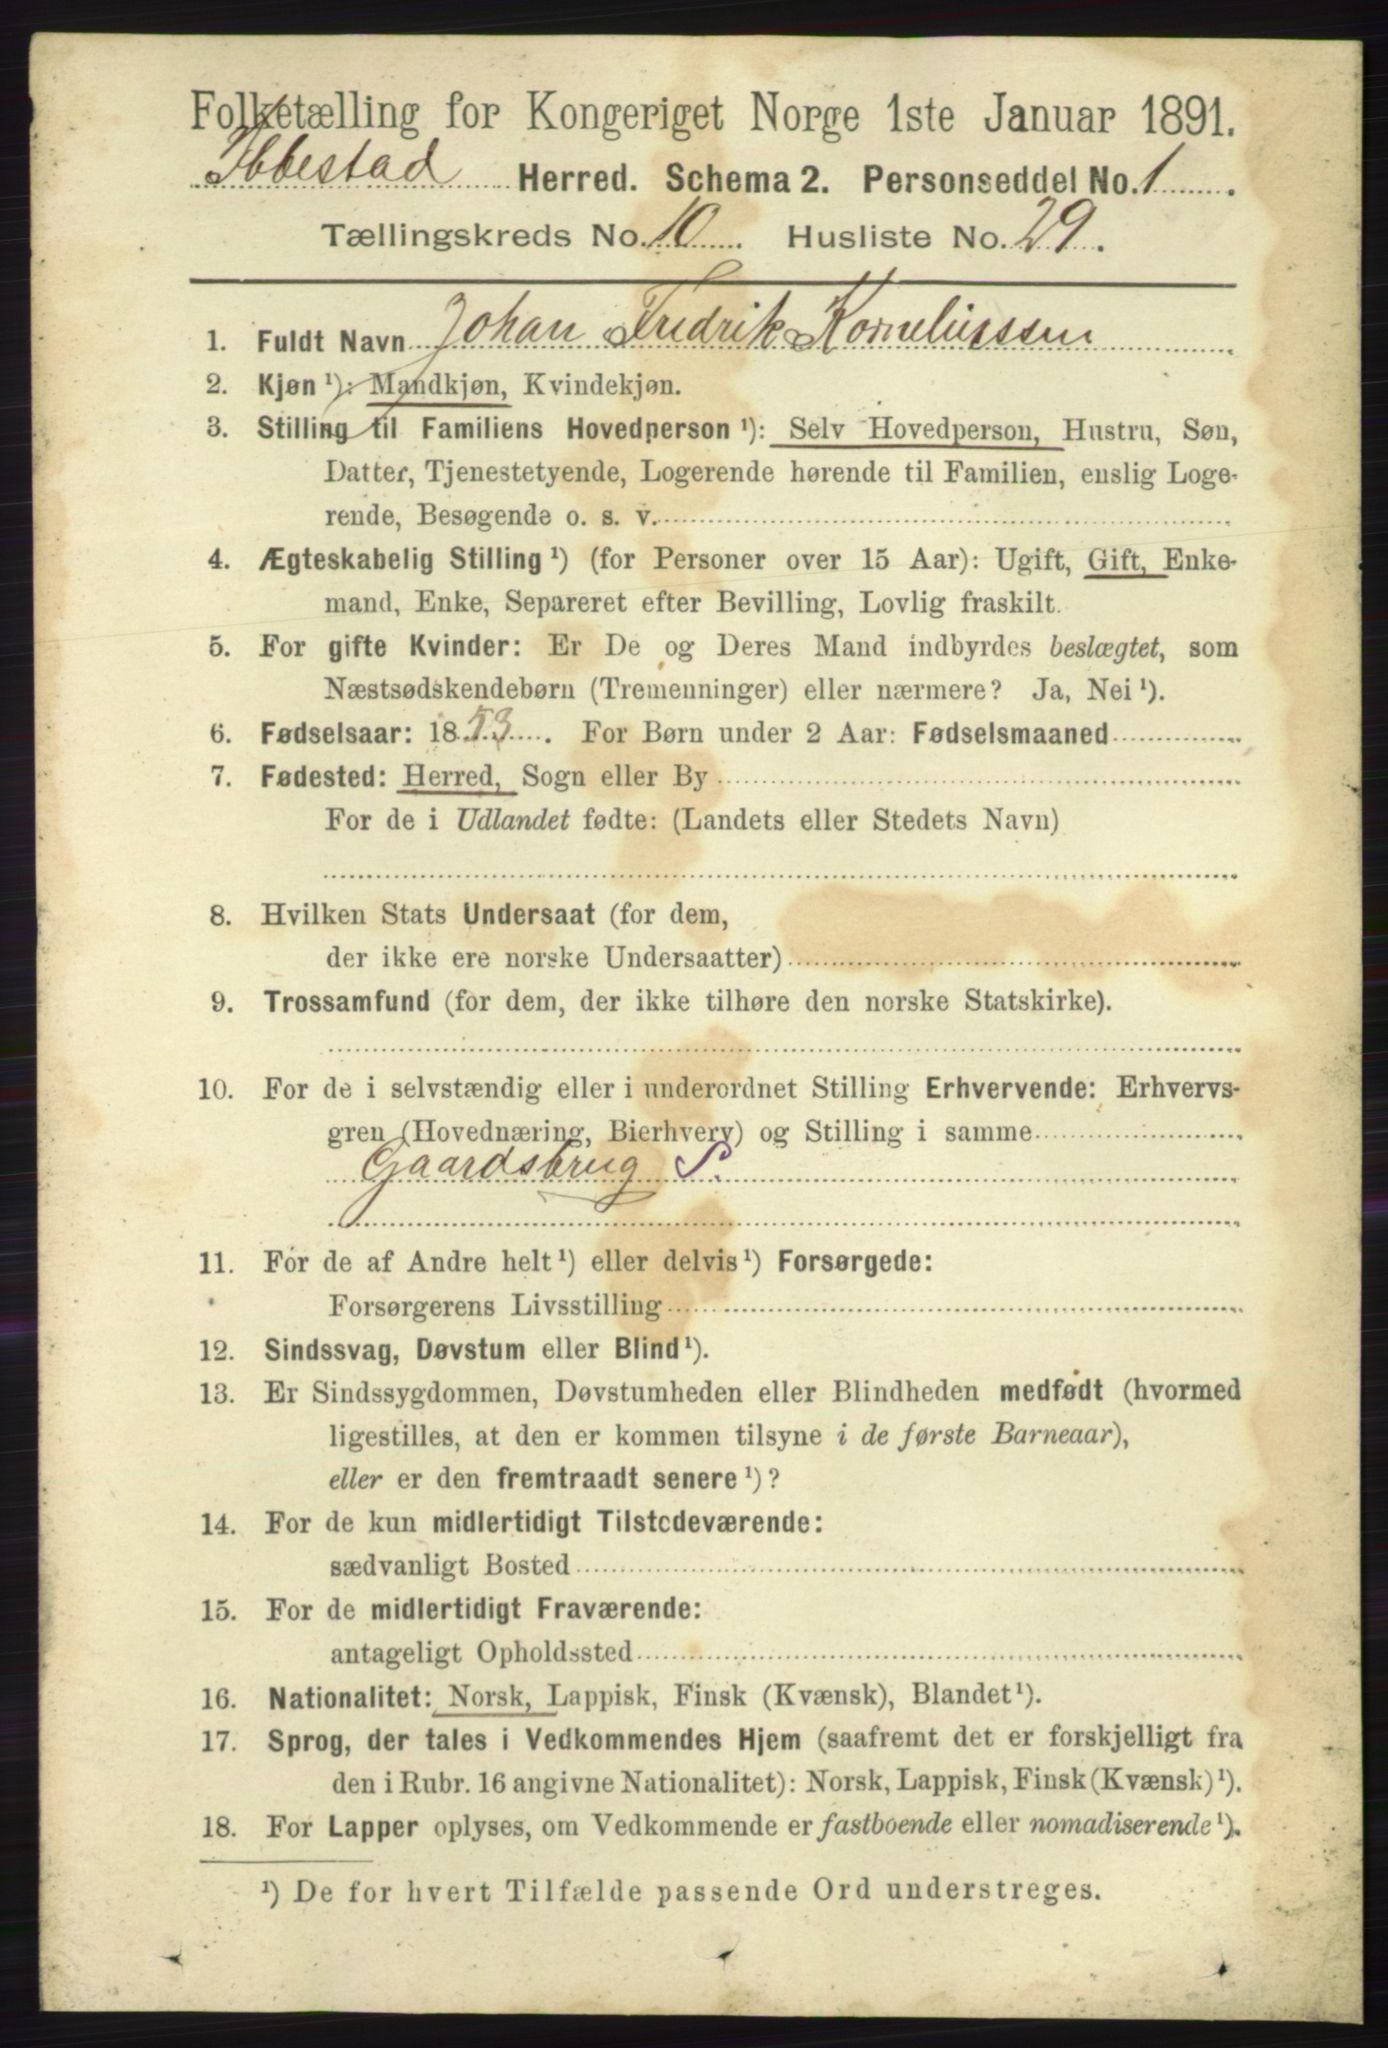 Folketælling for Kongeriget Norge 1ste Januar 1891.
Ibbestad Herred. Schema 2. Personseddel No. 1.
Tællingskreds No. 10. Husliste No. 29.
1. Fuldt Navn Johan Fredrik Korneliussen
2. Kjøn ¹): Mandkjøn, Kvindekjøn.
3. Stilling til Familiens Hovedperson ¹): Selv Hovedperson, Hustru, Søn,
Datter, Tjenestetyende, Logerende hørende til Familien, enslig Loge-
rende, Besøgende o. s. v.
4. Ægteskabelig Stilling ¹) (for Personer over 15 Aar): Ugift, Gift, Enke-
mand, Enke, Separeret efter Bevilling, Lovlig fraskilt.
5. For gifte Kvinder: Er De og Deres Mand indbyrdes beslægtet, som
Næstsødskendebørn (Tremenninger) eller nærmere? Ja, Nei ¹).
6. Fødselsaar: 1853. For Børn under 2 Aar: Fødselsmaaned
7. Fødested: Herred, Sogn eller By
For de i Udlandet fødte: (Landets eller Stedets Navn)
8. Hvilken Stats Undersaat (for dem,
der ikke ere norske Undersaatter)
9. Trossamfund (for dem, der ikke tilhøre den norske Statskirke).
10. For de i selvstændig eller i underordnet Stilling Erhvervende: Erhvervs-
gren (Hovednæring, Bierhverv) og Stilling i samme
Gaardsbrug S.
11. For de af Andre helt ¹) eller delvis ¹) Forsørgede:
Forsørgerens Livsstilling
12. Sindssvag, Døvstum eller Blind ¹).
13. Er Sindssygdommen, Døvstumheden eller Blindheden medfødt (hvormed
ligestilles, at den er kommen tilsyne i de første Barneaar),
eller er den fremtraadt senere ¹)?
14. For de kun midlertidigt Tilstedeværende:
sædvanligt Bosted
15. For de midlertidigt Fraværende:
antageligt Opholdssted
16. Nationalitet: Norsk, Lappisk, Finsk (Kvænsk), Blandet ¹).
17. Sprog, der tales i Vedkommendes Hjem (saafremt det er forskjelligt fra
den i Rubr. 16 angivne Nationalitet): Norsk, Lappisk, Finsk (Kvænsk) ¹).
18. For Lapper oplyses, om Vedkommende er fastboende eller nomadiserende ¹).
¹) De for hvert Tilfælde passende Ord understreges.